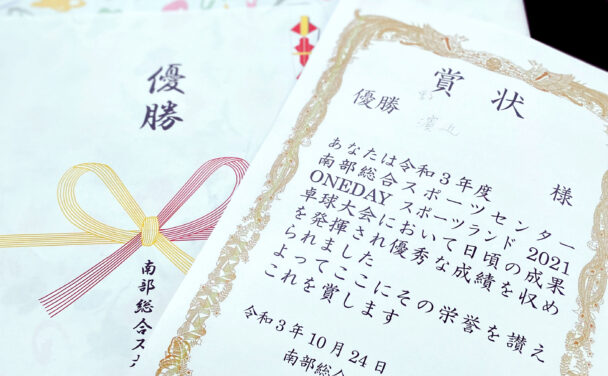 優勝
南部総合ス
賞状
優勝
様
あなたは令和3年度
南部総合スポーツセンター
ONEDAY スポーツランド 2021
卓球大会において日頃の成果
を発揮され優秀な成績を収め
られました
よってここにその栄誉を讃え
これを賞します
令和3年10月24日
南部総